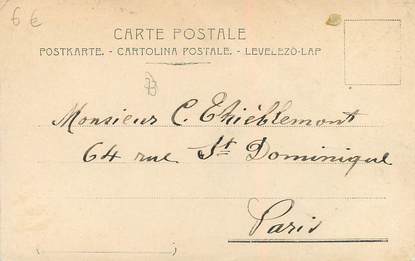 6€
CARTE POSTALE
POSTKARTE. - CARTOLINA POSTALE. - LEVELEZÖ-LAP
Monsieur C. Thiéblemont
64 rue St Dominique
Paris